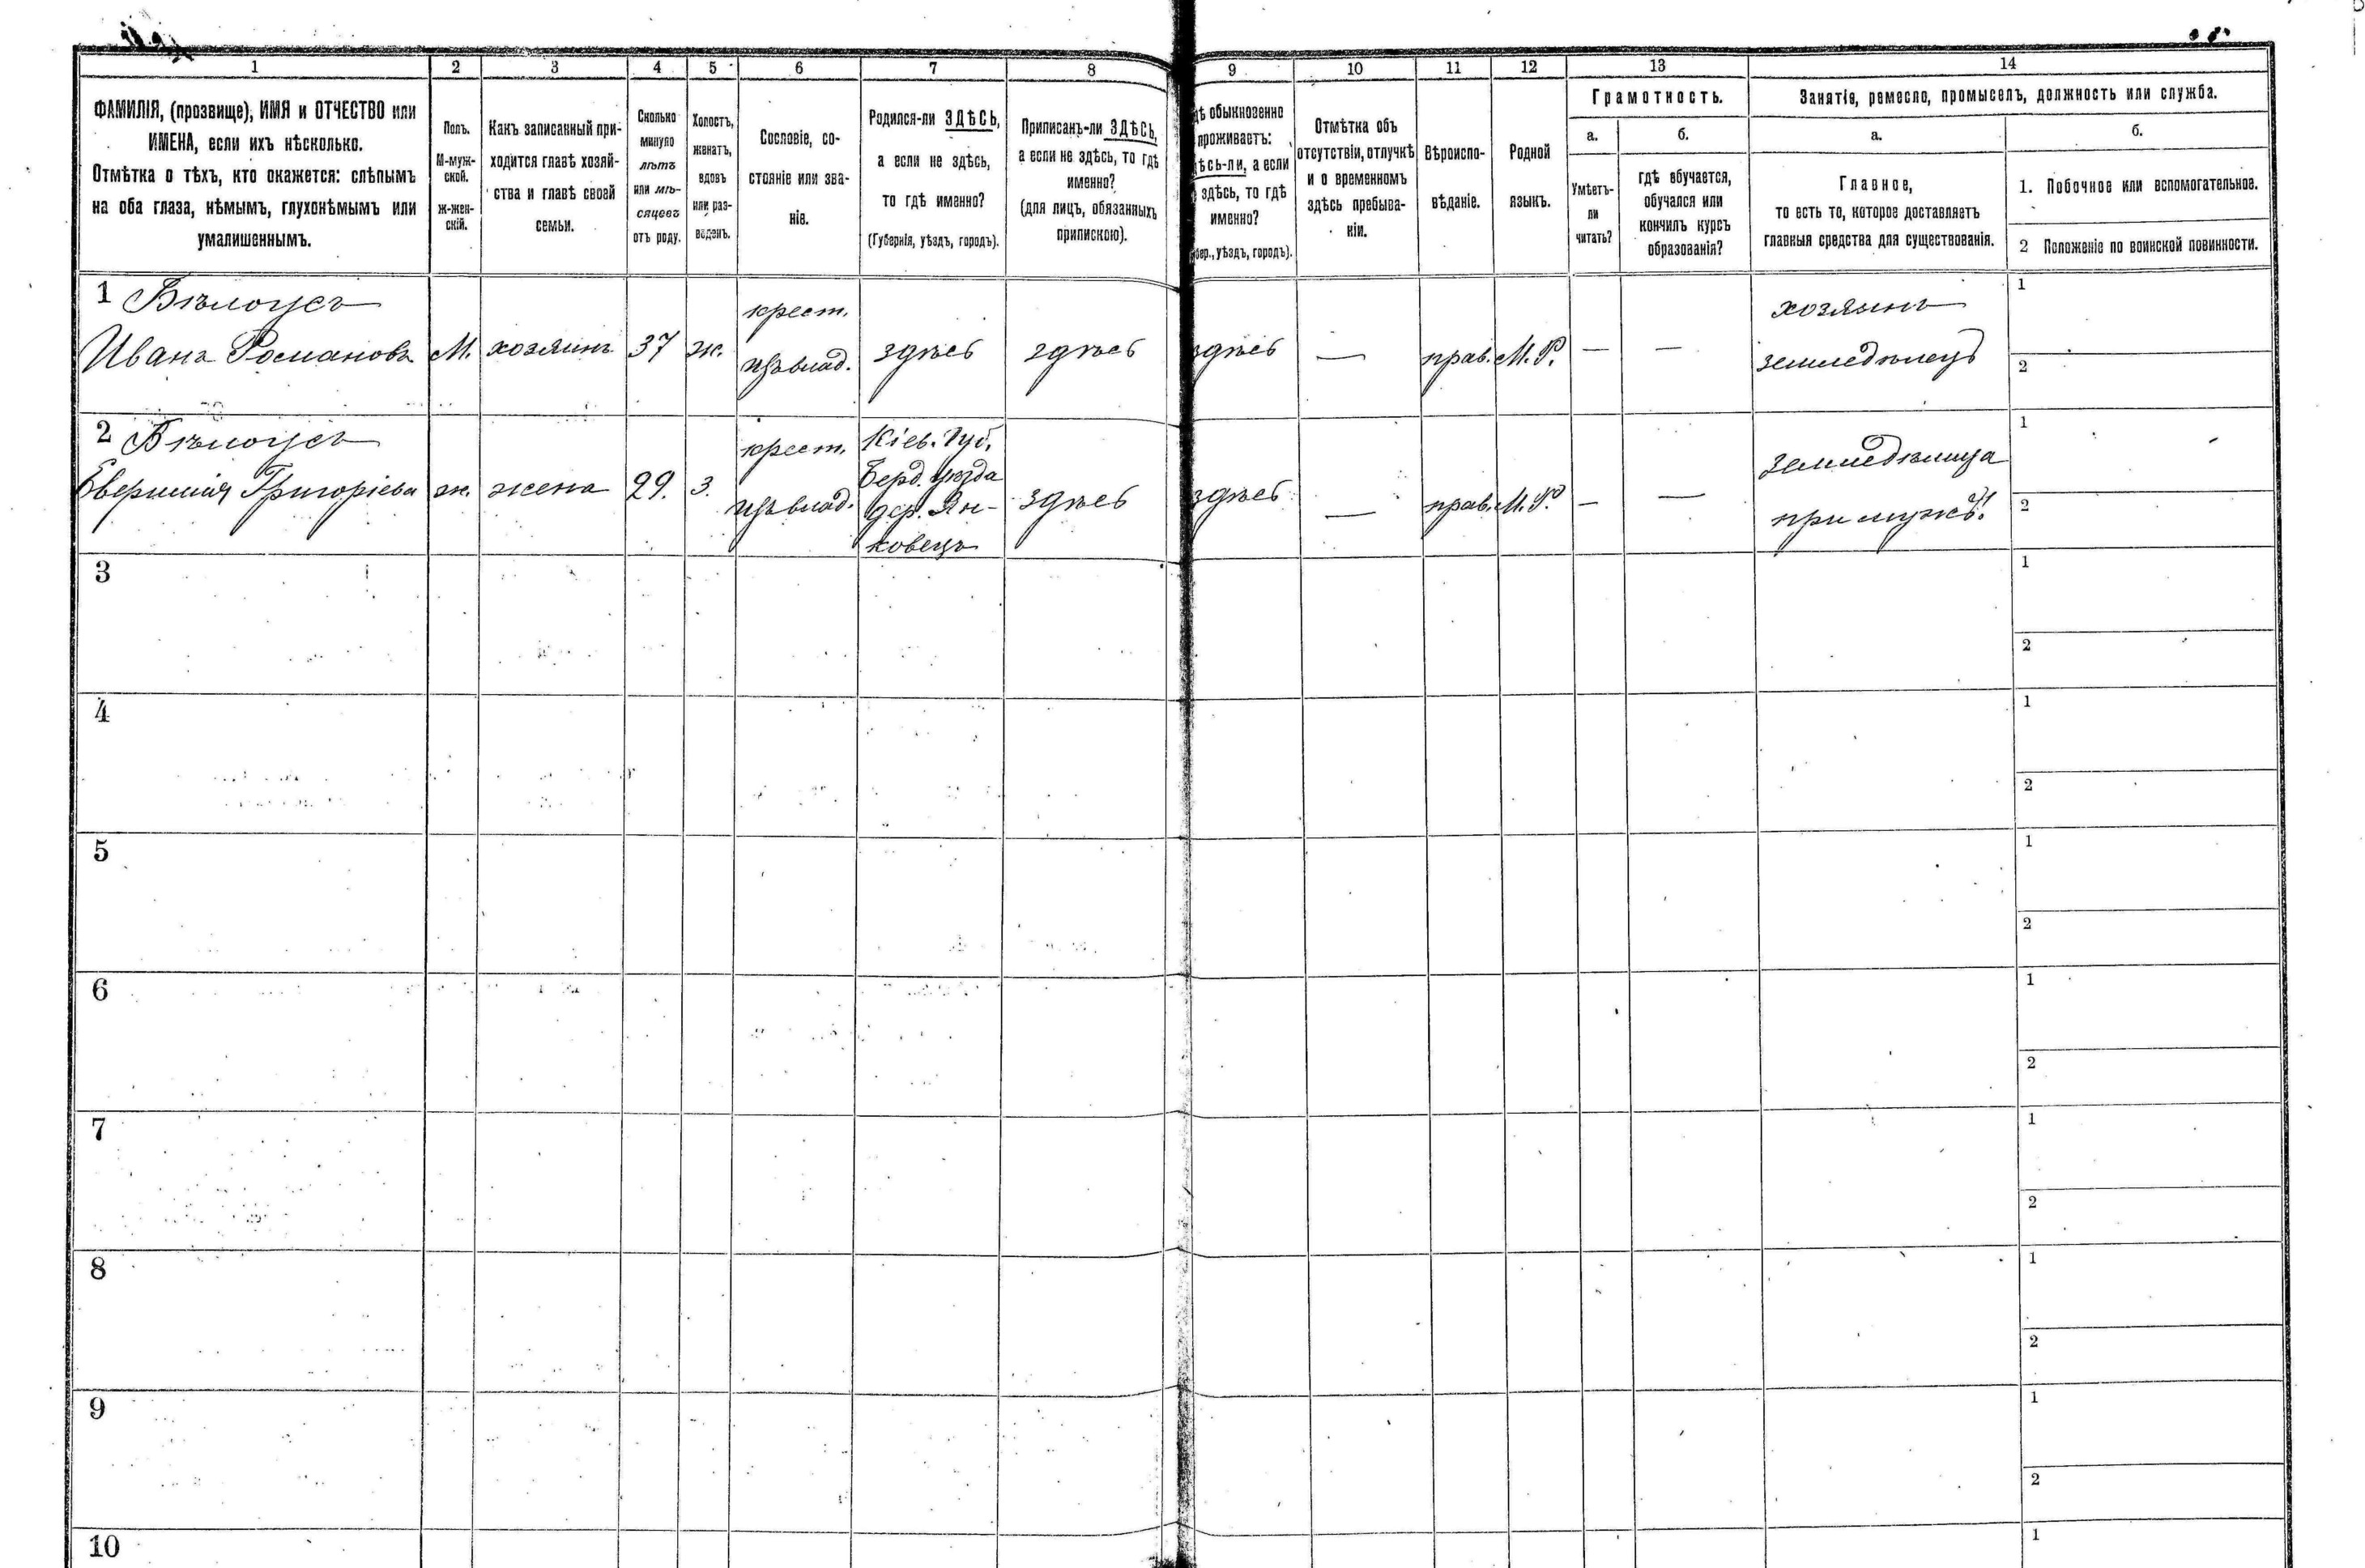 1 2 3 4 5 6 7 8 9 10 11 12 13 14
ФАМИЛІЯ, (прозвище), ИМЯ и ОТЧЕСТВО или
ИМЕНА, если ихъ нѣсколько.
Отмѣтка о тѣхъ, кто окажется: слѣпымъ
на оба глаза, нѣмымъ, глухонѣмымъ или
умалишеннымъ.
Полъ.
М-муж-
ской.
ж-жен-
скій.
Какъ записанный при-
ходится главѣ хозяй-
ства и главѣ своей
семьи.
Сколько
минуло
лѣтъ
или мѣ-
сяцевъ
отъ роду.
Холостъ,
женатъ,
вдовъ
или раз-
веденъ.
Сословіе, со-
стояніе или зва-
ніе.
Родился-ли ЗДѢСЬ,
а если не здѣсь,
то гдѣ именно?
(Губернія, уѣздъ, городъ).
Приписанъ-ли ЗДѢСЬ,
а если не здѣсь, то гдѣ
именно?
(для лицъ, обязанныхъ
припискою).
дѣ обыкновенно
проживаетъ:
ѣсь-ли, а если
здѣсь, то гдѣ
именно?
бер., уѣздъ, городъ).
Отмѣтка объ
отсутствіи, отлучкѣ
и о временномъ
здѣсь пребыва-
ніи.
Вѣроиспо-
вѣданіе.
Родной
языкъ.
Грамотность.
а.
Умѣетъ-
ли
читать?
б.
гдѣ обучается,
обучался или
кончилъ курсъ
образованія?
Занятіе, ремесло, промыселъ, должность или служба.
а.
Главное,
то есть то, которое доставляетъ
главныя средства для существованія.
б.
1. Побочное или вспомогательное.
2 Положеніе по воинской повинности.
1 Бѣлоусъ
Иванъ Романовъ
М.
хозяинъ
37
ж.
крест.
изъ влад.
здѣсь
здѣсь
здѣсь
—
прав.
М. Р.
—
—
хозяинъ
земледѣлецъ
1
2
2 Бѣлоусъ
Григоріева
ж.
жена
29.
з.
крест.
изъ влад.
Кіев. Губ.
Берд. уѣзда
дер. Ян-
ковецъ
здѣсь
здѣсь
—
прав.
М. Р.
—
—
при мужѣ.
1
2
3
1
2
4
1
2
5
1
2
6
1
2
7
1
2
8
1
2
9
1
2
10
1